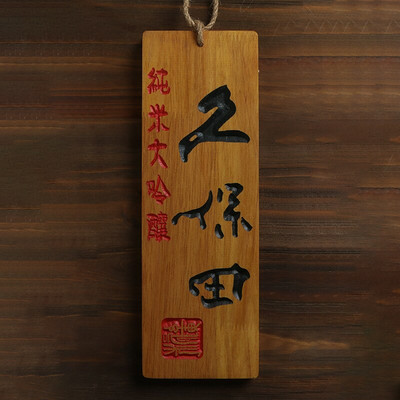 久保田
純米大吟醸